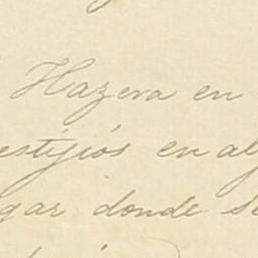 Hazera en
estijiós en al
gar donde se